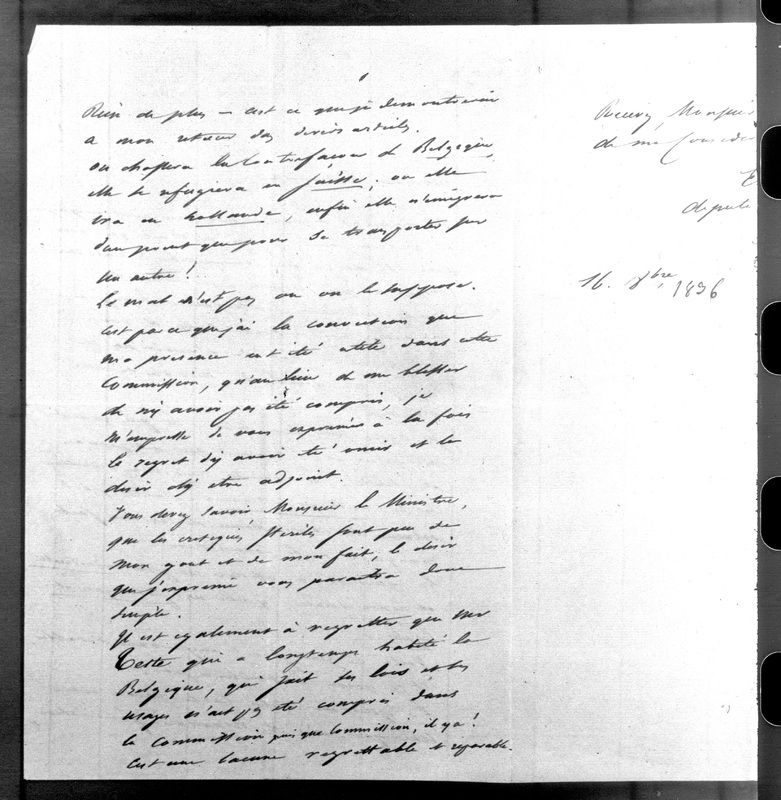 Rien de plus — c'est ce que je
a mon retour des
on chassera la contrefaçon de Belgique
elle se refugiera en Suisse; ou elle
ira en hollande, enfin elle n'émigrera
d'un point que pour se transporter sur
un autre!
Le mal n'est pas ou on le suppose.
C'est parce que j'ai la conviction que
ma presence eut été utile dans cette
Commission, qu'au lieu de me blesser
de n'y avoir pas été compris, je
m'empresse de vous exprimer à la fois
le regret d'y avoir été omis et le
desir d'y etre adjoint.
Vous devez savoir Monsieur le Ministre,
que les critiques steriles sont peu de
mon gout et de mon fait, le desir
que j'exprime vous paraitra donc
simple.
Il est egalement à regretter que Mr
Teste qui a longtemps habité la
Belgique, qui sait ses lois et ses
usages n'ait pas été compris dans
la Commission puisque Commission, il y a!
C'est une lacune regrettable et reparable.
Recevez, Monsieur
de ma Consider
député
16. 8bre 1836